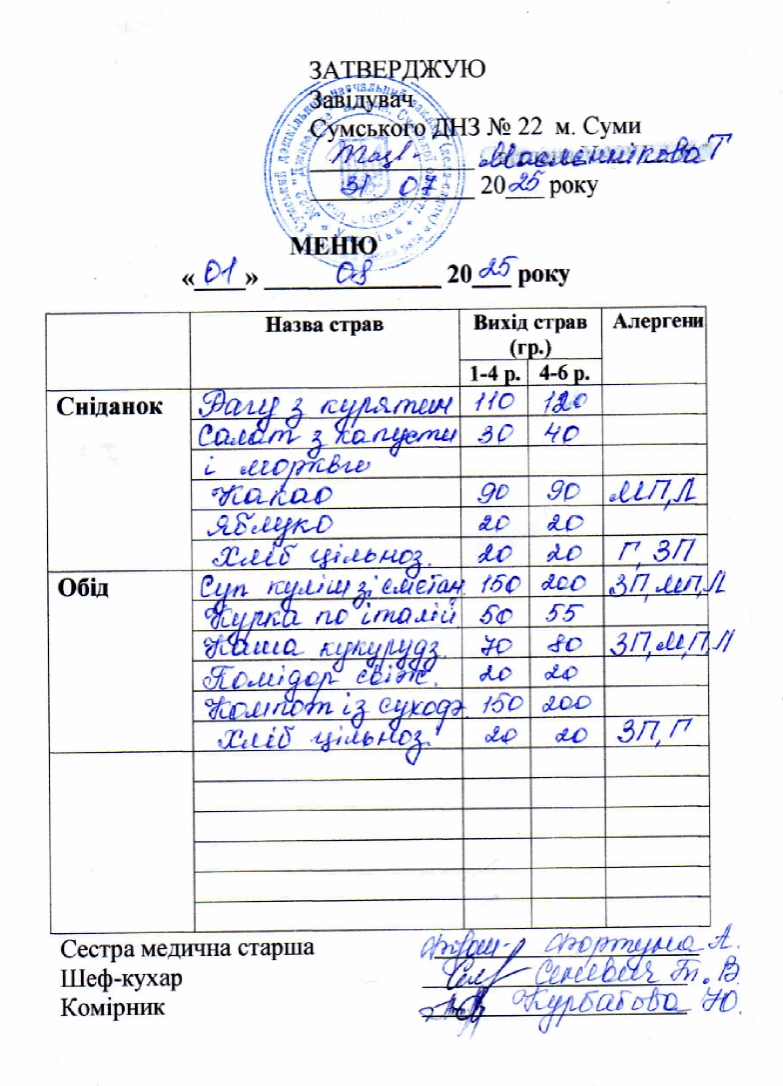 ЗАТВЕРДЖУЮ
Завідувач
Сумського ДНЗ № 22 м. Суми
Масленнікова Т
31 07 2025 року
МЕНЮ
«01» 08 2025 року
Назва страв Вихід страв (гр.) Алергени
1-4 р. 4-6 р.
Сніданок Рагу з курятин 110 120
Салат з капусти 30 40
і моркви
Какао 90 90 МП,Л
Яблуко 20 20
Хліб цільноз. 20 20 Г, ЗП
Обід Суп куліш зі сметан. 150 200 ЗП, МП, Л
Курка по італій 50 55
Каша кукурудз. 70 80 ЗП, М,П,Л
Помідор свіж. 20 20
Компот із сухофр. 150 200
Хліб цільноз. 20 20 ЗП, Г
Сестра медична старша Фортуна А.
Шеф-кухар Сеневич Т. В.
Комірник Курбатова Ю.